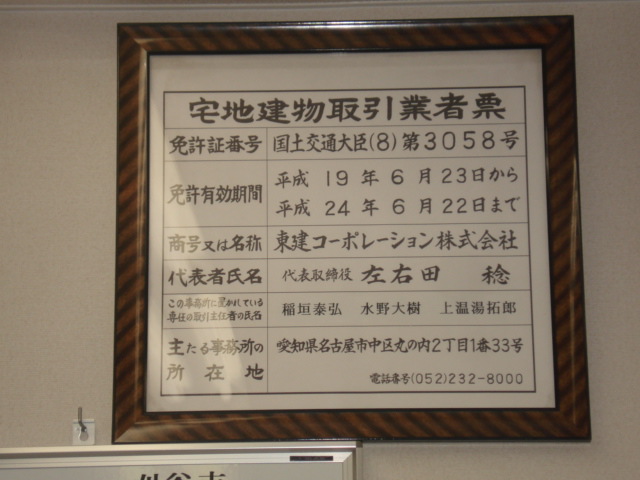 宅地建物取引業者票
免許証番号 国土交通大臣(8)第3058号
免許有効期間 平成 19 年 6 月 23日から
平成 24 年 6 月 22日まで
商号又は名称 東建コーポレーション株式会社
代表者氏名 代表取締役 左右田 稔
この事務所に置かれている
専任の取引主任者の氏名 稲垣泰弘 水野大樹 上温湯拓郎
主たる事務所の
所在地 愛知県名古屋市中区丸の内2丁目1番33号
電話番号(052)232-8000